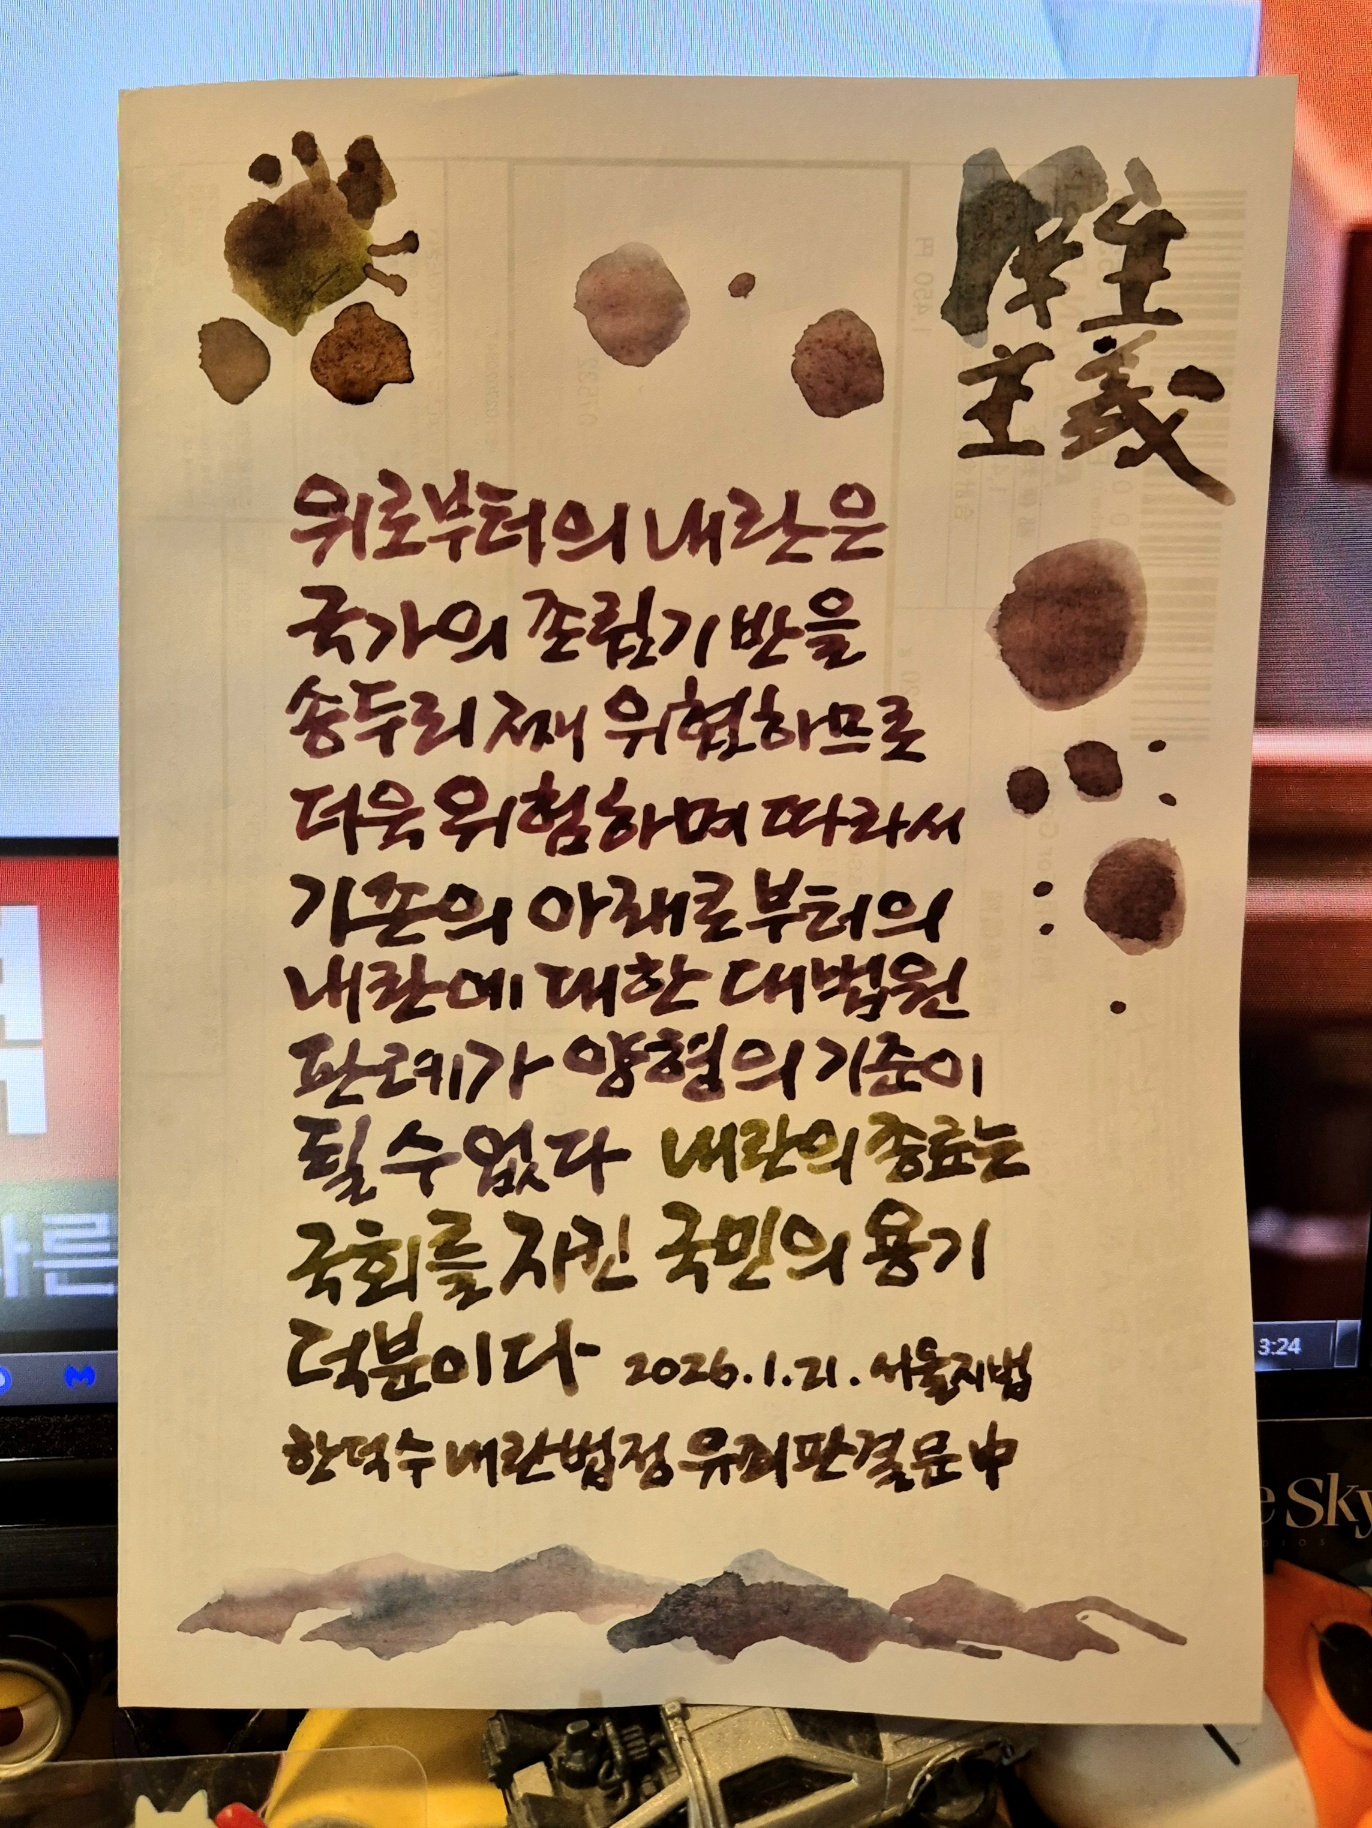 民主
主義
위로부터의 내란은
국가의 존립기반을
송두리째 위협하므로
더욱 위험하며 따라서
기존의 아래로부터의
내란에 대한 대법원
판례가 양형의 기준이
될 수 없다 내란의 종료는
국회를 지킨 국민의 용기
덕분이다
2026.1.21. 서울지법
한덕수 내란법정 유죄판결문 中
3:24
e Sky